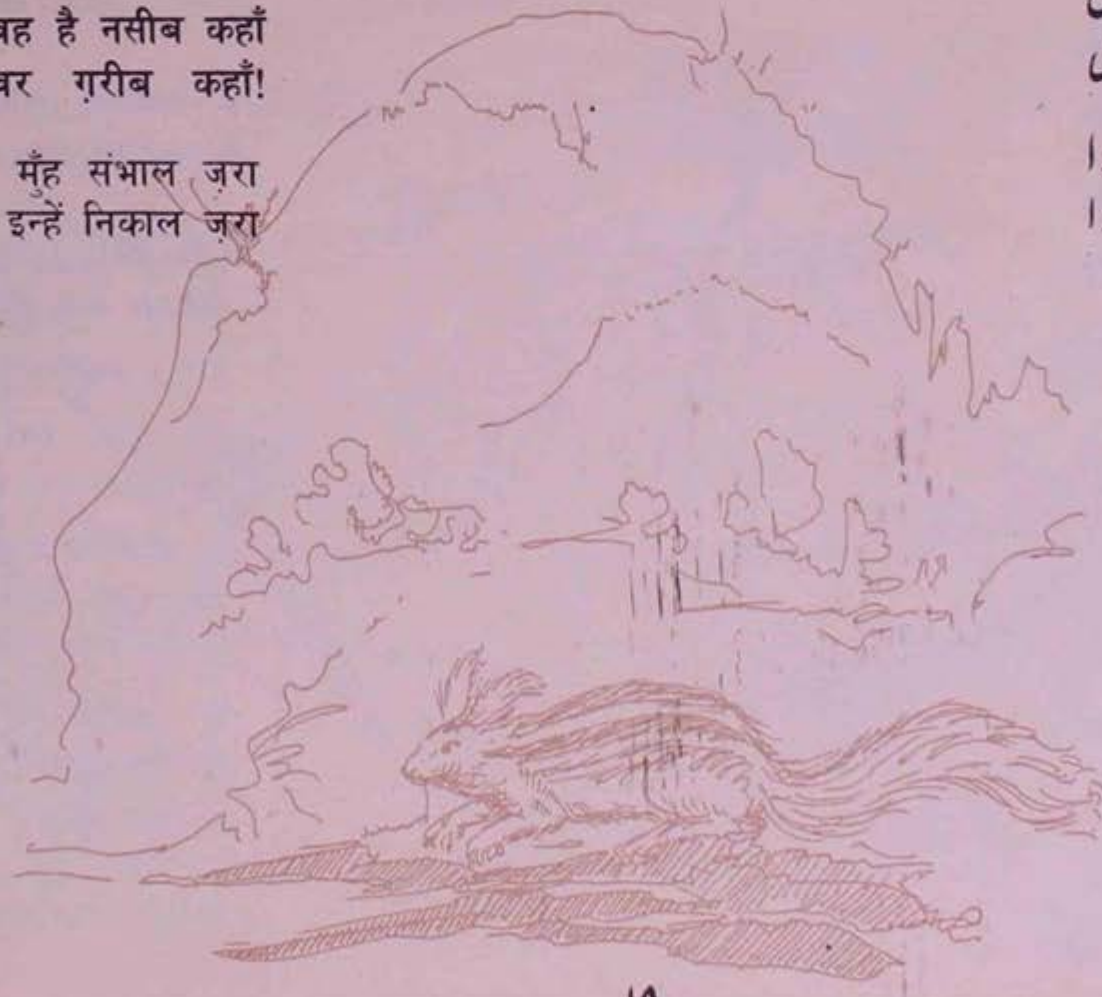 है नसीब कहाँ
ग़रीब कहाँ!
मुँह संभाल ज़रा
इन्हें निकाल ज़रा